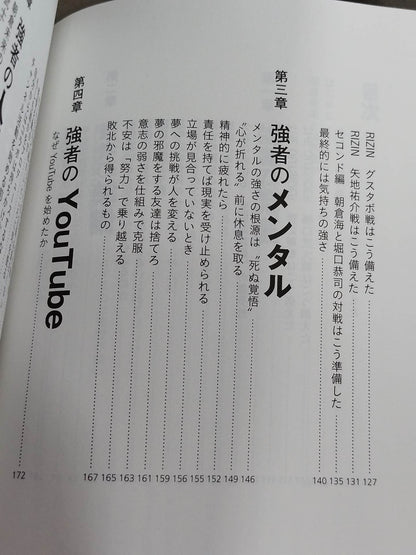 RIZIN グスタボ戦はこう備えた 127
RIZIN 矢地祐介戦はこう備えた 131
セコンド編 朝倉海と堀口恭司の対戦はこう準備した 135
最終的には気持ちの強さ 140
第三章 強者のメンタル
メンタルの強さの根源は〝死ぬ覚悟〟 146
〝心が折れる〟前に休息を取る 149
精神的に疲れたら 152
責任を持てば現実を受け止められる 155
立場が見合っていないとき 156
夢への挑戦が人を変える 159
夢の邪魔をする友達は捨てろ 161
意志の弱さを仕組みで克服 163
不安は「努力」で乗り越える 165
敗北から得られるもの 167
第四章 強者のYouTube
なぜYouTubeを始めたか 172
強者の